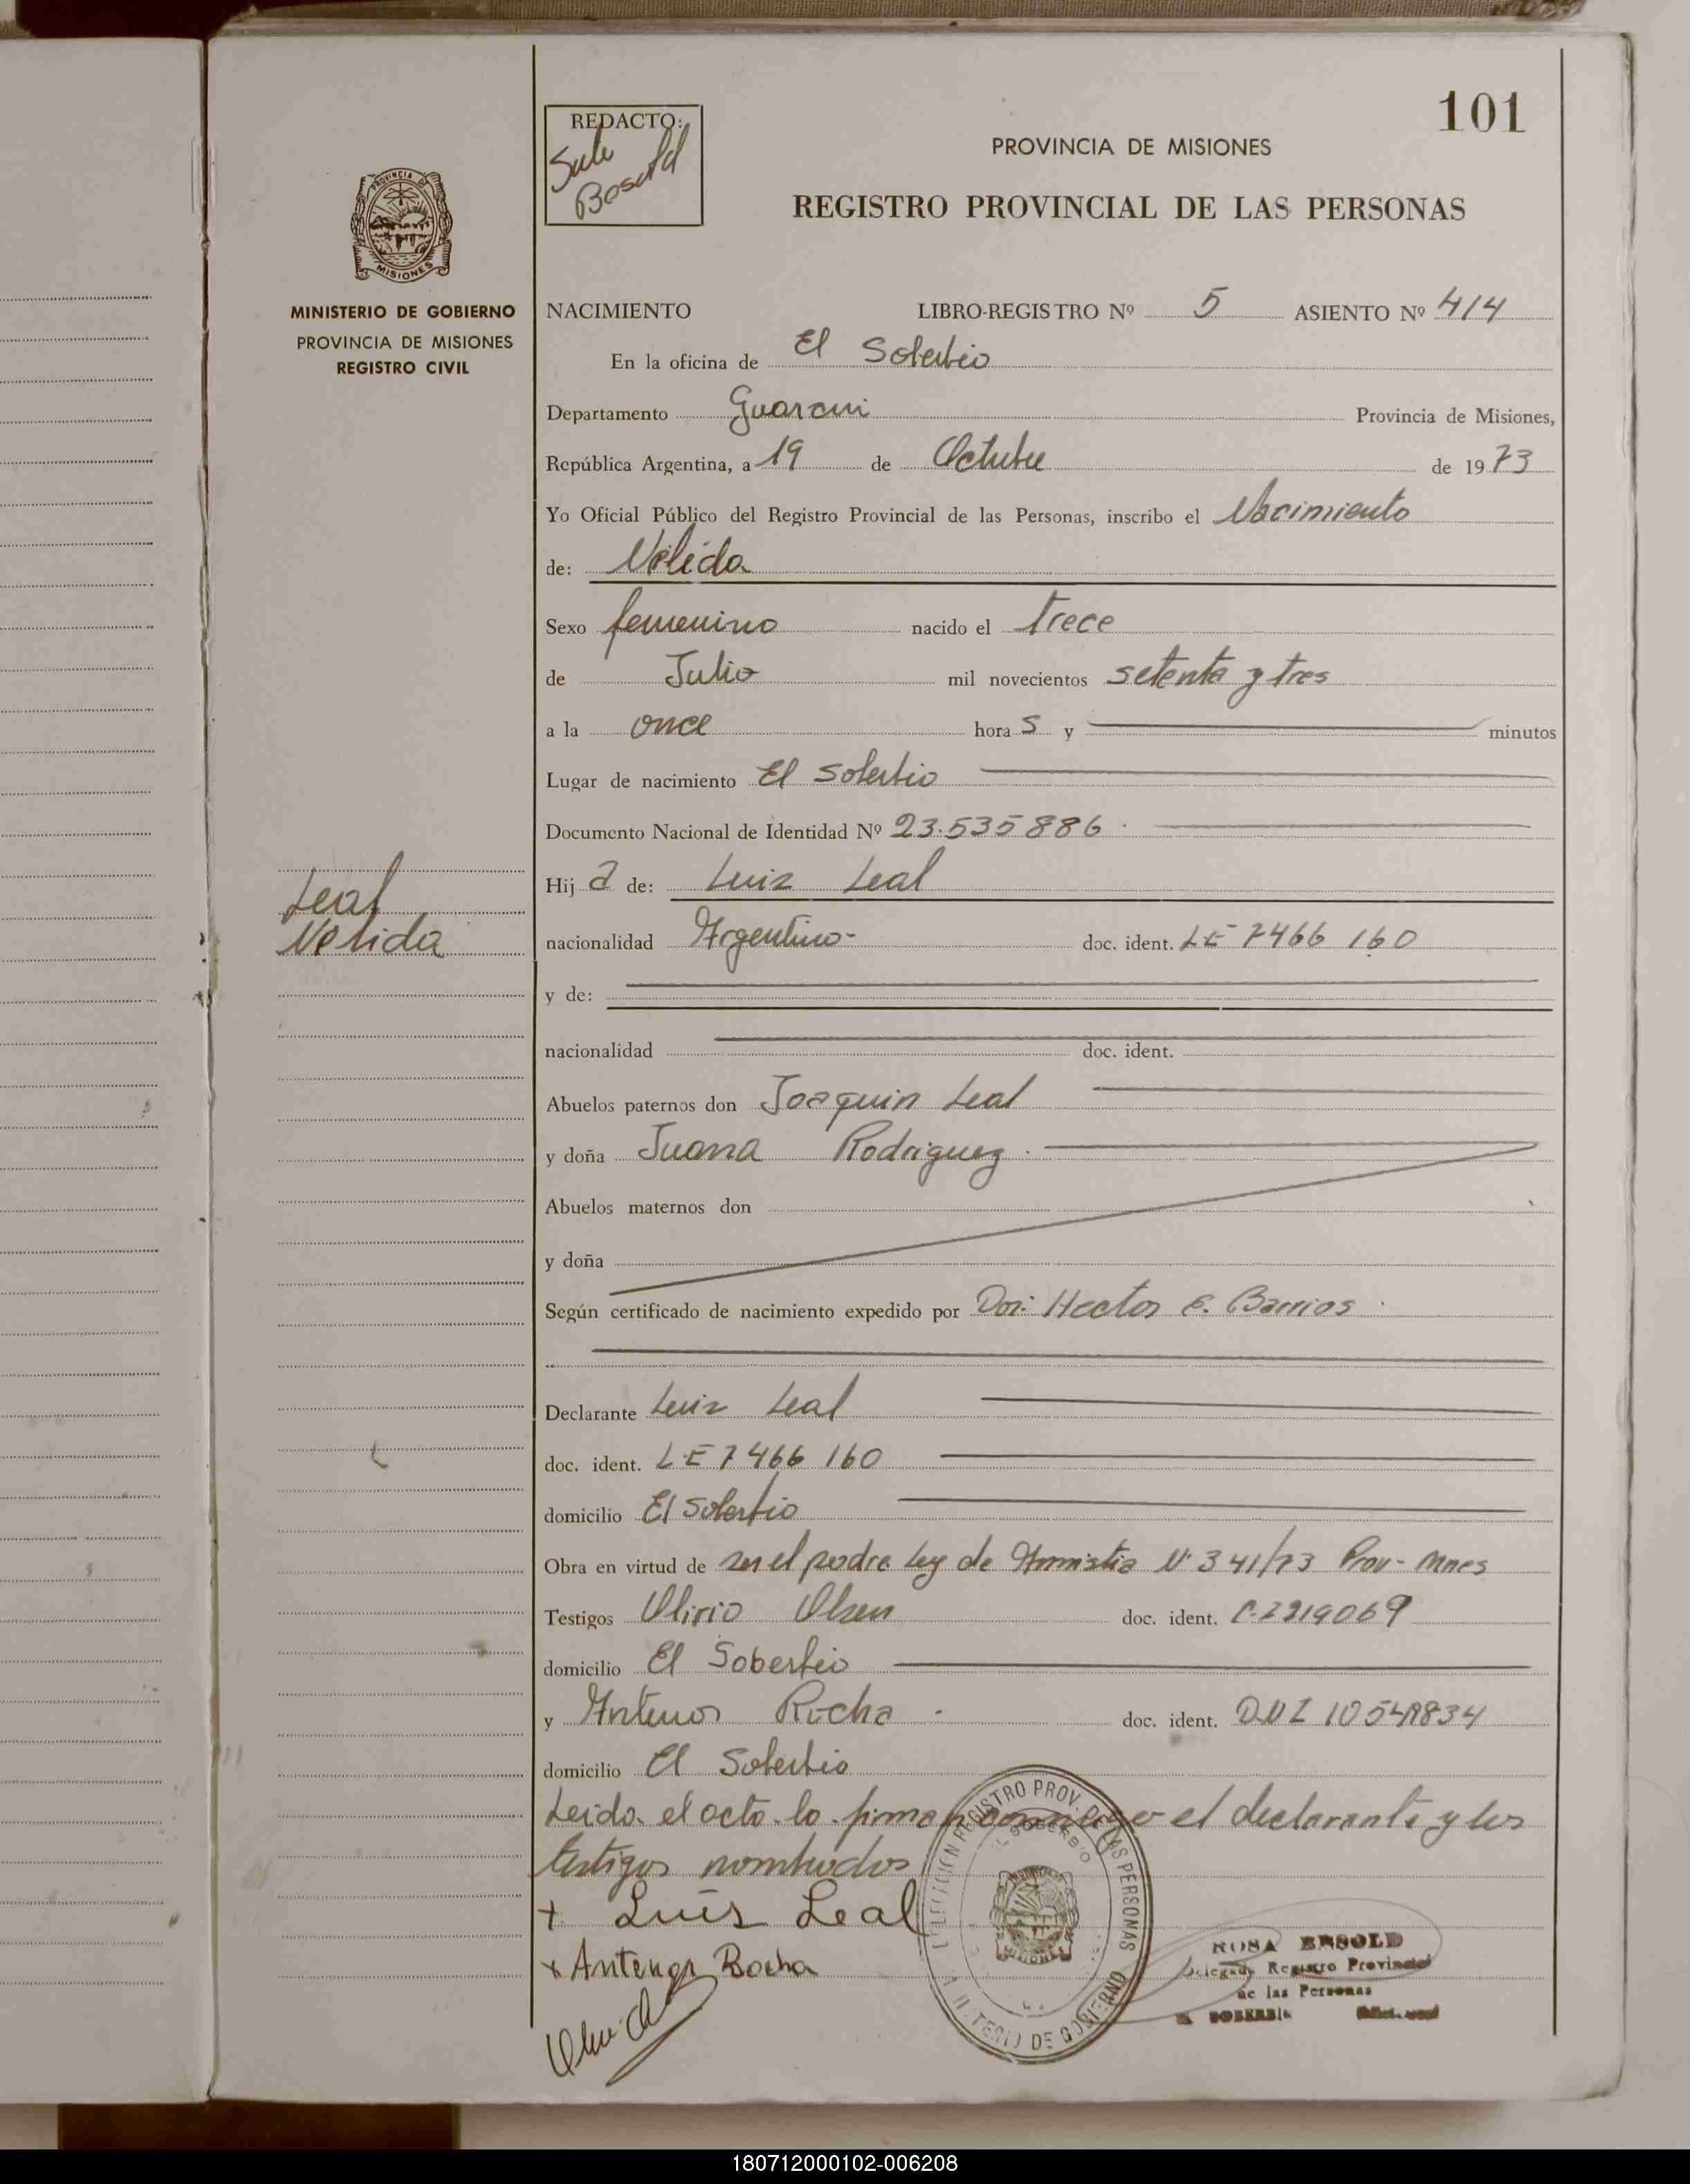 101
REDACTO:
PROVINCIA DE MISIONES
REGISTRO PROVINCIAL DE LAS PERSONAS
PROVINCIA DE
MISIONES
MINISTERIO DE GOBIERNO
PROVINCIA DE MISIONES
REGISTRO CIVIL
NACIMIENTO LIBRO-REGISTRO Nº 5 ASIENTO Nº 414
En la oficina de El Soberbio
Departamento Guarani Provincia de Misiones,
República Argentina, a 19 de Octubre de 1973
Yo Oficial Público del Registro Provincial de las Personas, inscribo el Nacimiento
de: Nélida
Sexo femenino nacido el trece
de Julio mil novecientos setenta y tres
a la once hora s y minutos
Lugar de nacimiento El Soberbio
Documento Nacional de Identidad Nº 23.535886
Leal
Nelida
Hij a de: Luiz Leal
nacionalidad Argentino- doc. ident. LE 7466 160
y de:
nacionalidad doc. ident.
Abuelos paternos don Joaquin Leal
y doña Juana Rodriguez.
Abuelos maternos don
y doña
Según certificado de nacimiento expedido por Dor: Hector E. Barrios
Declarante Luiz Leal
doc. ident. LE 7466 160
domicilio El Soberbio
Obra en virtud de ser el padre Ley de Amnistia Nº 341/73 Prov- Mnes
Testigos Olirio Olsen doc. ident. C.I 219069
domicilio El Soberbio
y Antenor Rocha . doc. ident. DNI
domicilio El Soberbio
Leida el acta lo firman conmigo el declarante y los
testigos nombrados
+ Luis Leal
x Antenor Rocha
REGISTRO PROV. DE LAS PERSONAS
EL SOBERBIO
MISIONES
MINISTERIO DE GOBIERNO
ROSA BASOLD
Delegada Registro Provincial
de las Personas
EL SOBERBIO
180712000102-006208